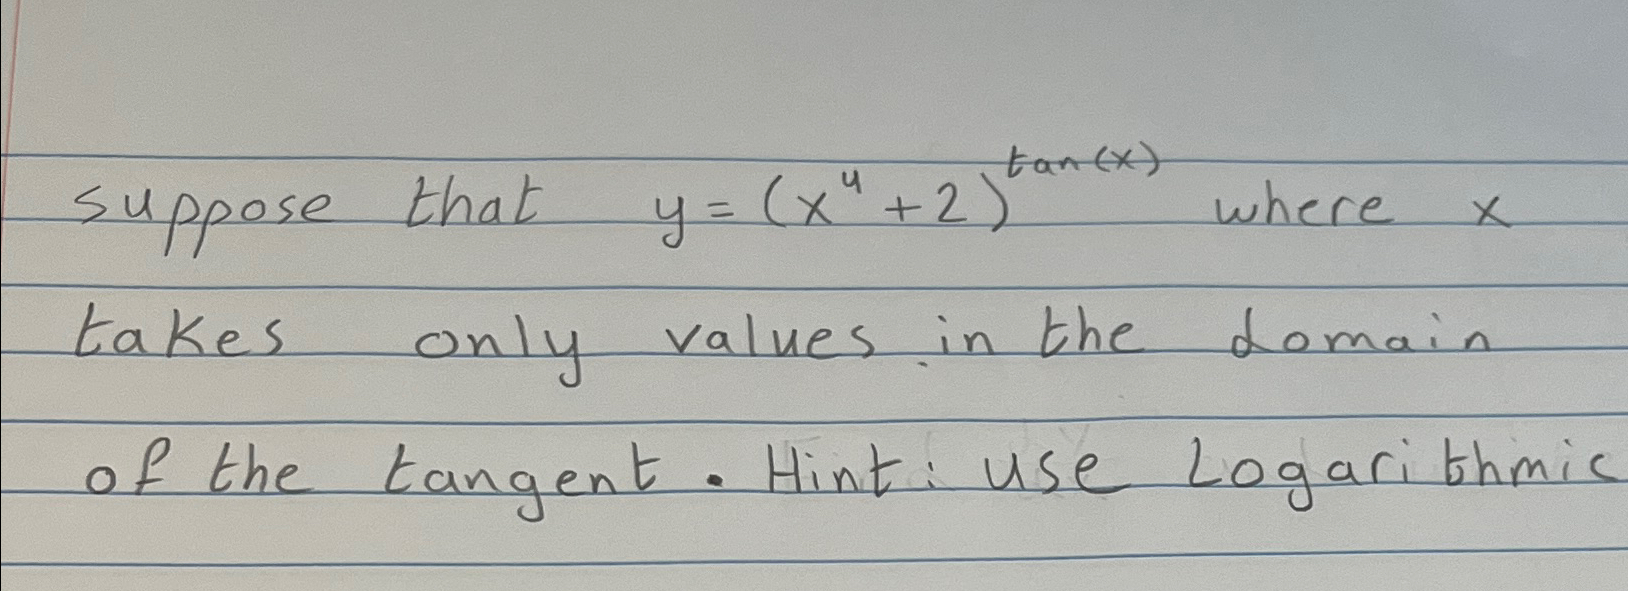 suppose that y = (x⁴ + 2)^tan(x) where x
takes only values in the domain
of the tangent. Hint: use Logarithmic